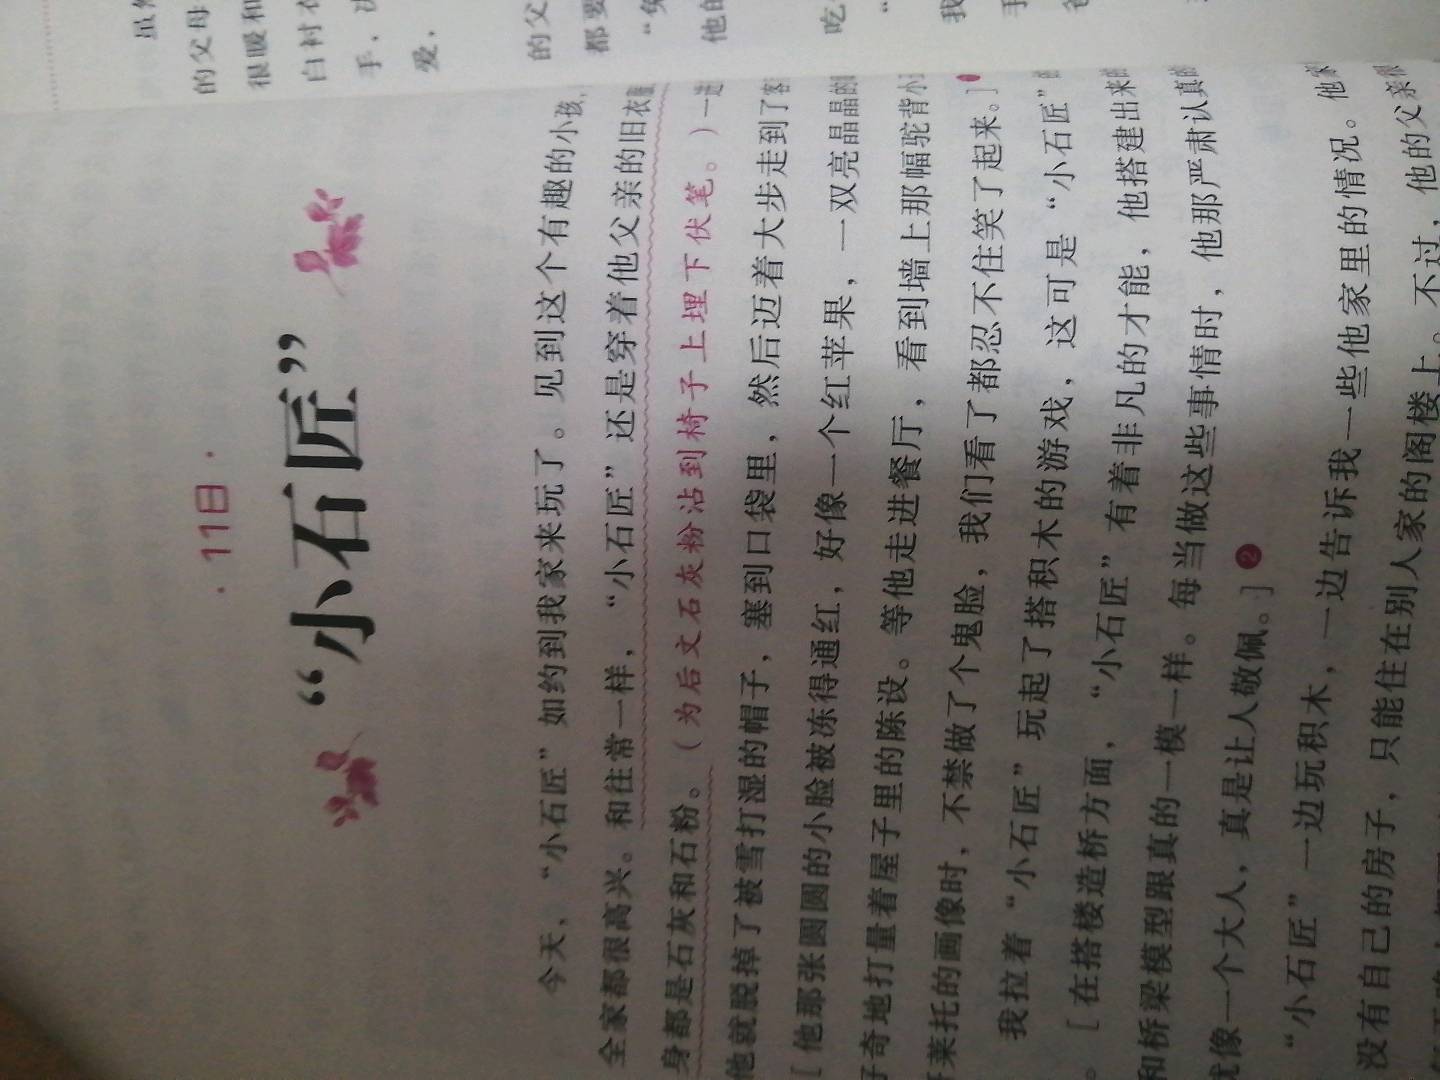 的父母
很暖和
白衬衣
手，
爱，
的父
都要
他的
吃
我
手
· 11日 ·
“小石匠”
今天，“小石匠”如约到我家来玩了。见到这个有趣的小孩，
全家都很高兴。和往常一样，“小石匠”还是穿着他父亲的旧衣
身都是石灰和石粉。（为后文石灰粉沾到椅子上埋下伏笔。）一进
他就脱掉了被雪打湿的帽子，塞到口袋里，然后迈着大步走到了客
［他那张圆圆的小脸被冻得通红，好像一个红苹果，一双亮晶晶的
奇地打量着屋子里的陈设。等他走进餐厅，看到墙上那幅驼背小
莱托的画像时，不禁做了个鬼脸，我们看了都忍不住笑了起来。］
我拉着“小石匠”玩起了搭积木的游戏，这可是“小石匠”的
。［在搭楼造桥方面，“小石匠”有着非凡的才能，他搭建出来的
和桥梁模型跟真的一模一样。每当做这些事情时，他那严肃认真的
就像一个大人，真是让人敬佩。］❷
“小石匠”一边玩积木，一边告诉我一些他家里的情况。他家
没有自己的房子，只能住在别人家的阁楼上。不过，他的父亲很